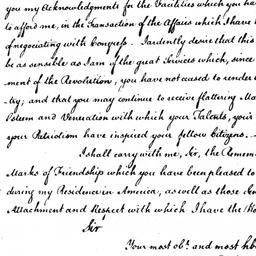 you my Acknowledgments for the Facilities which you ha
to afford me, in the Transaction of the Affairs which I have t
of negociating with Congress. I ardently desire that this
be as sensible as I am of the great Services which, since
ment of the Revolution, you have not ceased to render
try; and that you may continue to receive flattering Ma
Esteem and Veneration with which your Talents, your
your Patriotism have inspired your fellow Citizens.
I shall carry with me, Sir, the Remem
Marks of Friendship which you have been pleased to
during my Residence in America, as well as those
Attachment and Respect with which I have the Ho
Sir
Your most obt. and most hb